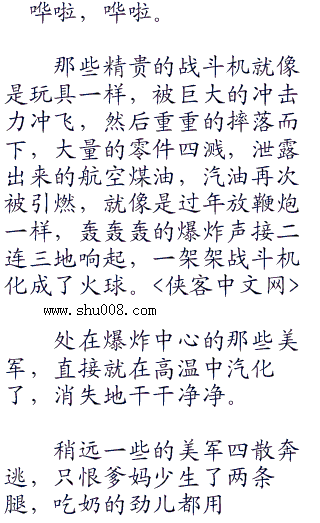 哗啦，哗啦。
那些精贵的战斗机就像
是玩具一样，被巨大的冲击
力冲飞，然后重重的摔落而
下，大量的零件四溅，泄露
出来的航空煤油，汽油再次
被引燃，就像是过年放鞭炮
一样，轰轰轰的爆炸声接二
连三地响起，一架架战斗机
化成了火球。<侠客中文网>
www.shu008.com
处在爆炸中心的那些美
军，直接就在高温中汽化
了，消失地干干净净。
稍远一些的美军四散奔
逃，只恨爹妈少生了两条
腿，吃奶的劲儿都用